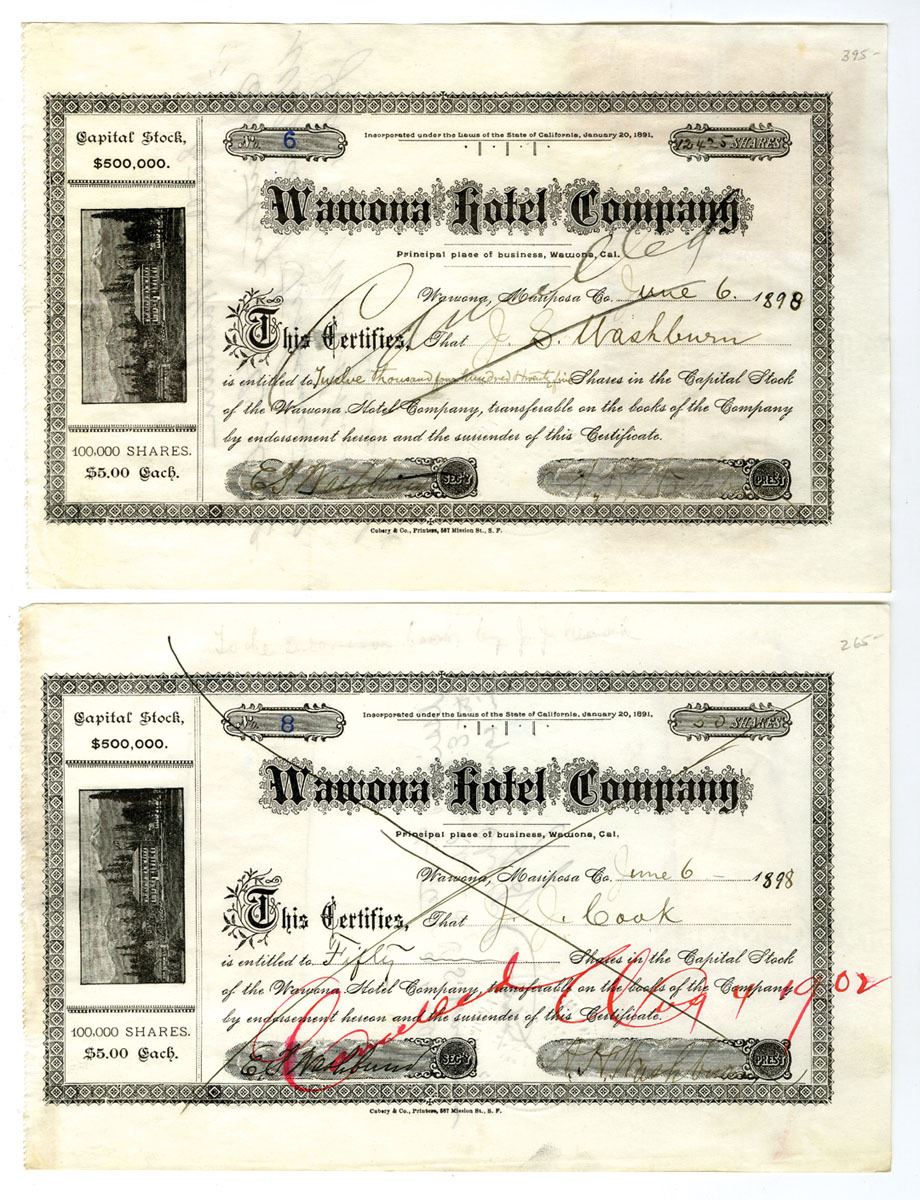 395-
Capital Stock,
$500,000.
100,000 SHARES.
$5.00 Each.
No. 6
Incorporated under the Laws of the State of California, January 20, 1891.
12425 SHARES
Wawona Hotel Company
Principal place of business, Wawona, Cal.
Cancelled
Wawona, Mariposa Co. June 6. 1898
This Certifies, That J. S. Washburn
is entitled to Twelve thousand four hundred twenty five Shares in the Capital Stock
of the Wawona Hotel Company, transferable on the books of the Company
by endorsement hereon and the surrender of this Certificate.
E S Washburn SEC'Y PRES'T
Cubery & Co., Printers, 587 Mission St., S. F.
265-
Capital Stock,
$500,000.
100,000 SHARES.
$5.00 Each.
No. 8
Incorporated under the Laws of the State of California, January 20, 1891.
50 SHARES
Wawona Hotel Company
Principal place of business, Wawona, Cal.
Wawona, Mariposa Co. June 6 - 1898
This Certifies, That J. J. Cook
is entitled to Fifty Shares in the Capital Stock
of the Wawona Hotel Company, transferable on the books of the Company
by endorsement hereon and the surrender of this Certificate.
Cancelled Aug 4 1902
E S Washburn SEC'Y Washburn PRES'T
Cubery & Co., Printers, 587 Mission St., S. F.